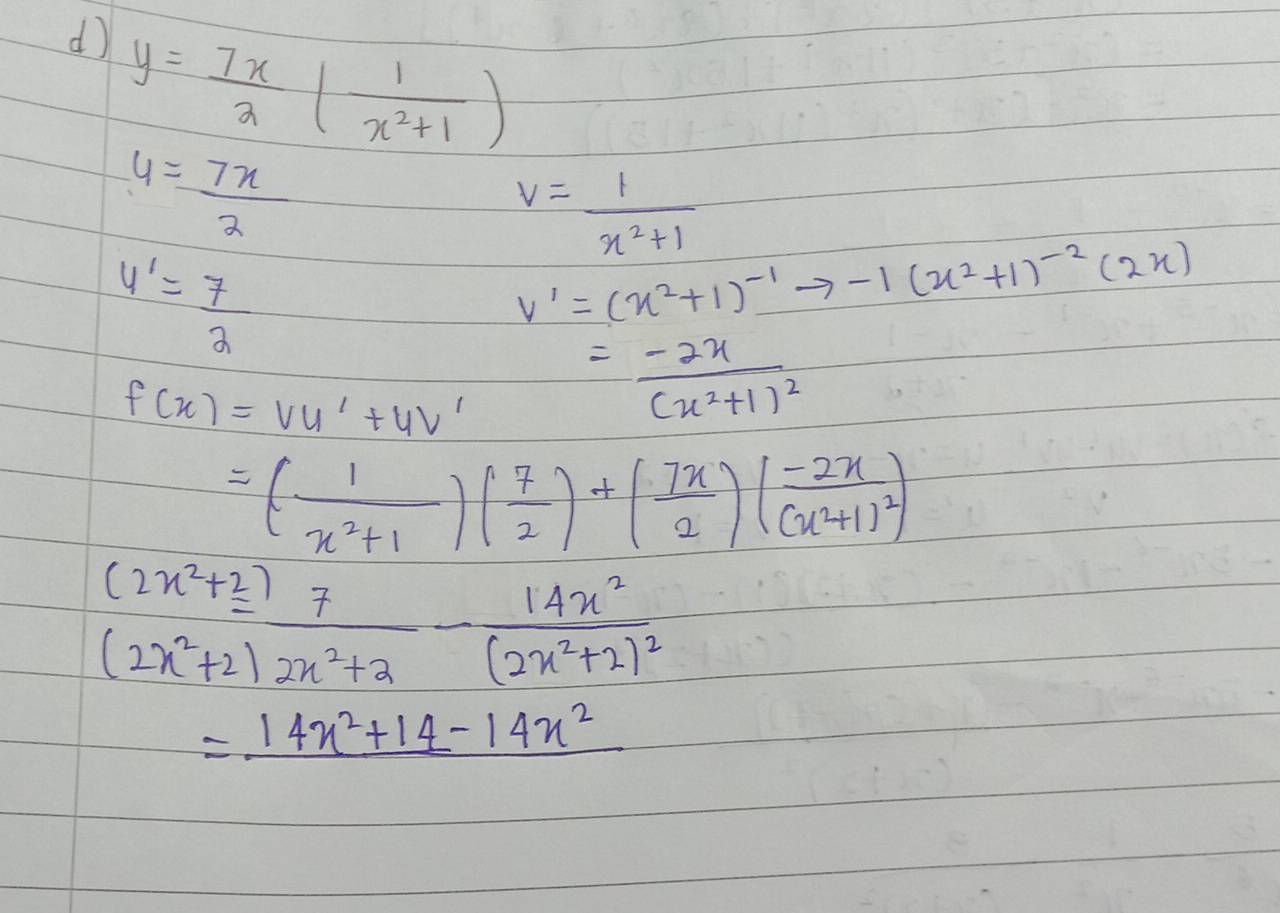 d) y = 7x/2 (1/(x²+1))
u = 7x/2 v = 1/(x²+1)
u' = 7/2 v' = (x²+1)⁻¹ → -1(x²+1)⁻²(2x)
= -2x/(x²+1)²
f(x) = vu' + uv'
= (1/(x²+1))(7/2) + (7x/2)(-2x/(x²+1)²)
(2x²+2)/(2x²+2) 7/(2x²+2) - 14x²/(2x²+2)²
= 14x²+14-14x²